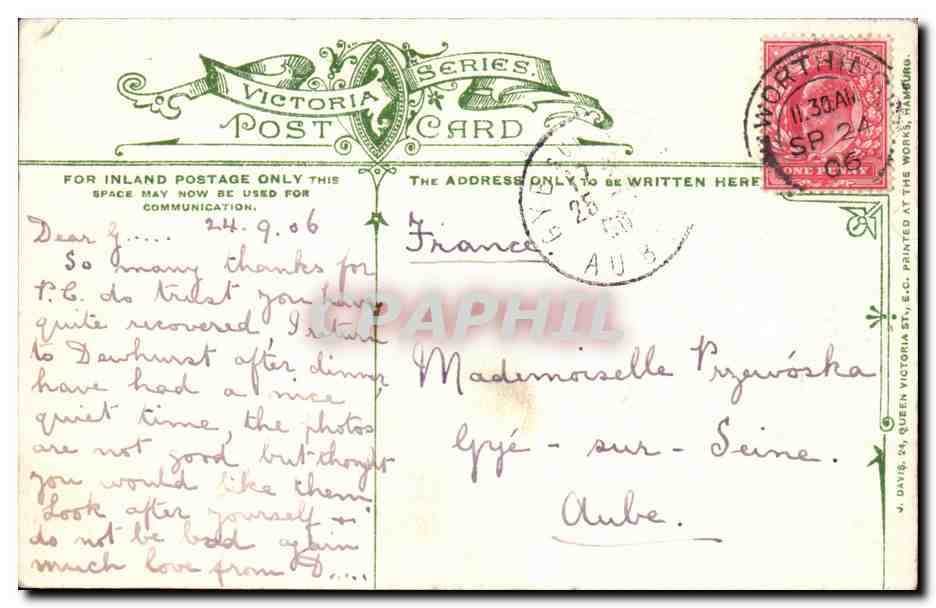 VICTORIA SERIES.
POST CARD
FOR INLAND POSTAGE ONLY THIS
SPACE MAY NOW BE USED FOR
COMMUNICATION.
THE ADDRESS ONLY TO BE WRITTEN HERE
WORTHIN
11.30AM
SP 24
06
ONE PENNY
25
AUB
24.9.06
Dear G.....
So many thanks for
P.C. do trust you have
quite recovered, I return
to Dewhurst after dinner
have had a nice
quiet time, the photos
are not good but thought
you would like them
Look after yourself +
do not be bad again
much love from D.....
France
Mademoiselle Przewóska
Gyé-sur-Seine.
Aube.
CPAPHIL
J. DAVIS. 24, QUEEN VICTORIA ST., E.C. PRINTED AT THE WORKS, HAMBURG.